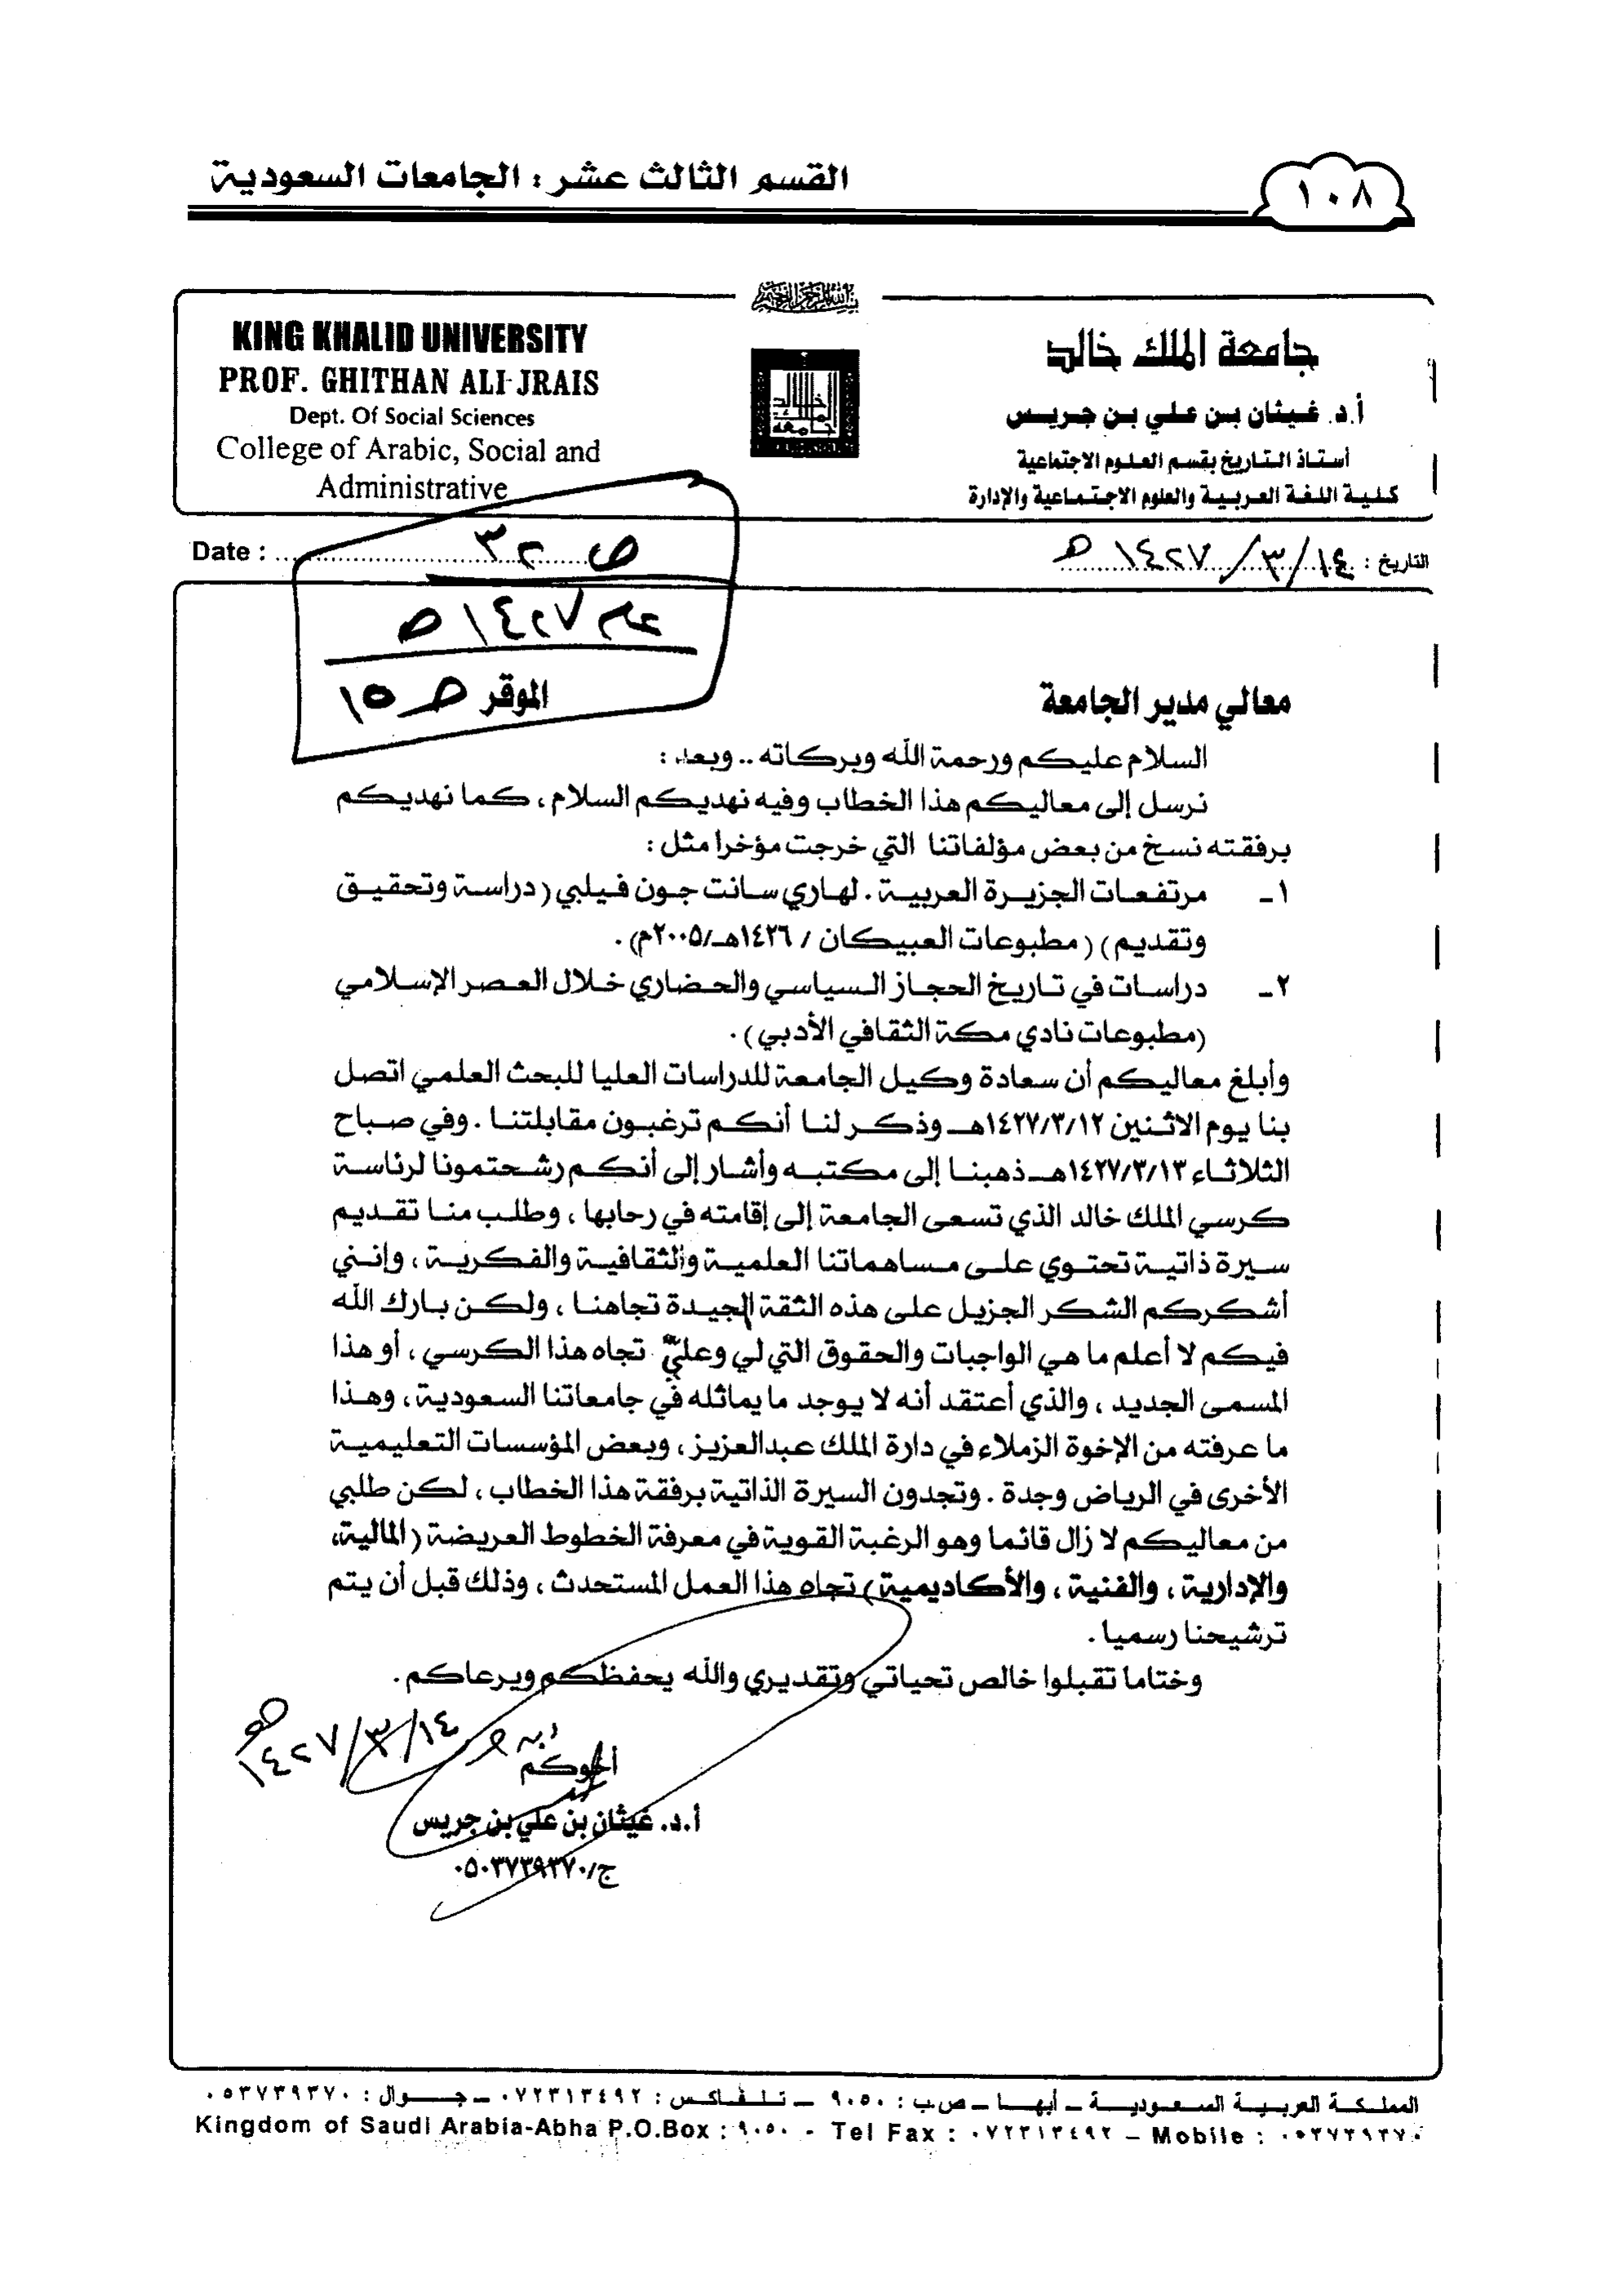 القسم الثالث عشر : الجامعات السعودية
١٠٨
بسم الله الرحمن الرحيم
KING KHALID UNIVERSITY
PROF. GHITHAN ALI JRAIS
Dept. Of Social Sciences
College of Arabic, Social and
Administrative
جامعة الملك خالد
أ.د. غيثان بن علي بن جريس
أستاذ التاريخ بقسم العلوم الاجتماعية
كلية اللغة العربية والعلوم الاجتماعية والإدارة
التاريخ : ١٤/٣/١٤٢٧ هـ
Date :
ص ٣٢
عام ١٤٢٧ هـ
ص ١٥
معالي مدير الجامعة الموقر
السلام عليكم ورحمة الله وبركاته .. وبعد :
نرسل إلى معاليكم هذا الخطاب وفيه نهديكم السلام ، كما نهديكم
برفقته نسخ من بعض مؤلفاتنا التي خرجت مؤخرا مثل :
١ـ مرتفعات الجزيرة العربية . لهاري سانت جون فيلبي (دراسة وتحقيق
وتقديم) (مطبوعات العبيكان / ١٤٢٦هـ/٢٠٠٥م) .
٢ـ دراسات في تاريخ الحجاز السياسي والحضاري خلال العصر الإسلامي
(مطبوعات نادي مكة الثقافي الأدبي) .
وأبلغ معاليكم أن سعادة وكيل الجامعة للدراسات العليا للبحث العلمي اتصل
بنا يوم الاثنين ١٤٢٧/٣/١٢هـ وذكر لنا أنكم ترغبون مقابلتنا . وفي صباح
الثلاثاء ١٤٢٧/٣/١٣هـ ذهبنا إلى مكتبه وأشار إلى أنكم رشحتمونا لرئاسة
كرسي الملك خالد الذي تسعى الجامعة إلى إقامته في رحابها ، وطلب منا تقديم
سيرة ذاتية تحتوي على مساهماتنا العلمية والثقافية والفكرية ، وإنني
أشكركم الشكر الجزيل على هذه الثقة الجيدة تجاهنا ، ولكن بارك الله
فيكم لا أعلم ما هي الواجبات والحقوق التي لي وعليّ تجاه هذا الكرسي ، أو هذا
المسمى الجديد ، والذي أعتقد أنه لا يوجد ما يماثله في جامعاتنا السعودية ، وهذا
ما عرفته من الإخوة الزملاء في دارة الملك عبدالعزيز ، وبعض المؤسسات التعليمية
الأخرى في الرياض وجدة . وتجدون السيرة الذاتية برفقة هذا الخطاب ، لكن طلبي
من معاليكم لا زال قائما وهو الرغبة القوية في معرفة الخطوط العريضة (المالية،
والإدارية ، والفنية ، والأكاديمية) تجاه هذا العمل المستحدث ، وذلك قبل أن يتم
ترشيحنا رسميا .
وختاما تقبلوا خالص تحياتي وتقديري والله يحفظكم ويرعاكم .
١٤/٣/١٤٢٧ هـ
أخوكم
أ.د. غيثان بن علي بن جريس
ج/٠٥٠٣٧٣٩٣٧٠
المملكة العربية السعودية ـ أبها ـ ص.ب : ٩٠٥٠ ـ تلفاكس : ٠٧٢٣١٣٤٩٢ ـ جوال : ٠٥٣٧٣٩٣٧٠
Kingdom of Saudi Arabia-Abha P.O.Box : ٩٠٥٠ - Tel Fax : ٠٧٢٣١٣٤٩٢ – Mobile : ٠٥٣٧٣٩٣٧٠